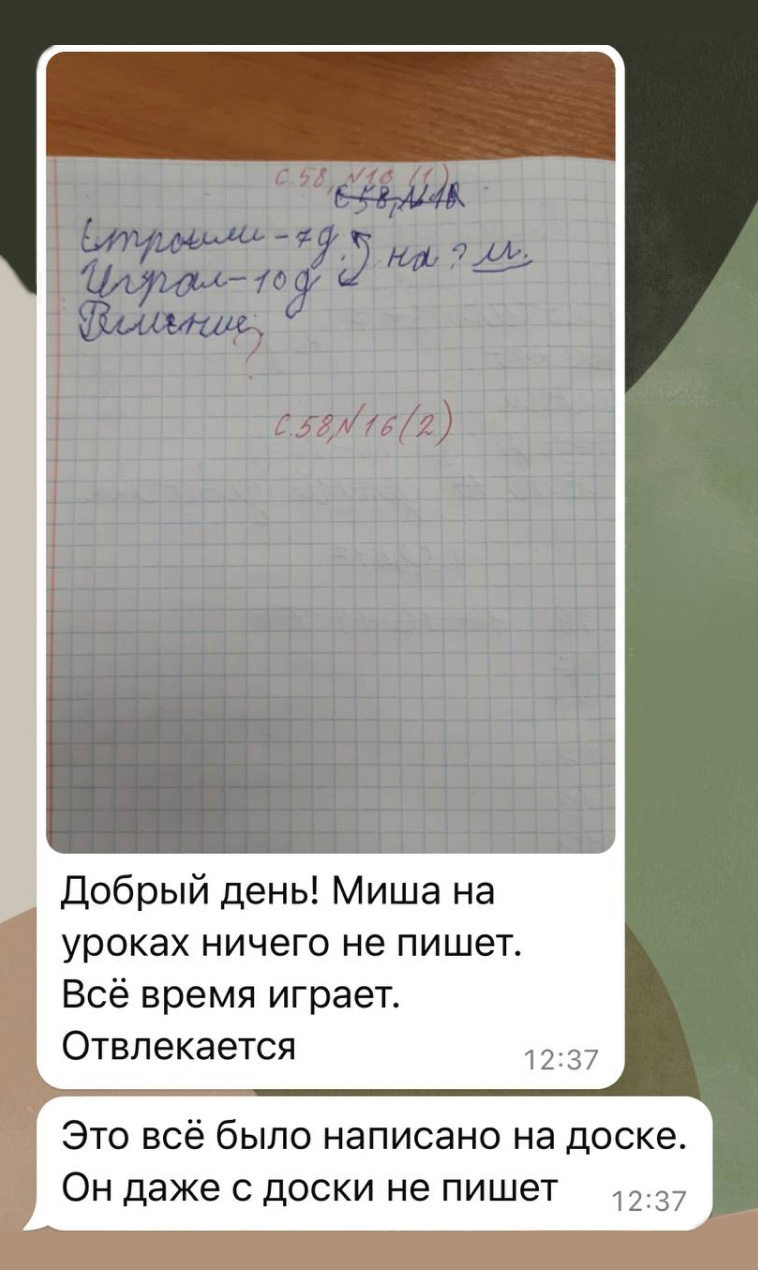 с.58, №16 (1)
с.58, №18
Строили – 7 д.
Играл – 10 д
на ? м.
Решение
?
с.58, №16(2)
Добрый день! Миша на
уроках ничего не пишет.
Всё время играет.
Отвлекается
12:37
Это всё было написано на доске.
Он даже с доски не пишет
12:37